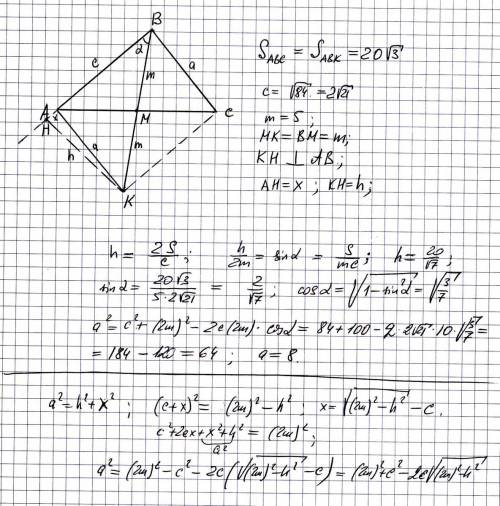 B
α
c
m
a
A
H
M
C
h
a
m
K
S_ABC = S_ABK = 20√3
c = √84 = 2√21
m = 5 ;
MK = BM = m;
KH ⊥ AB;
AH = x ; KH = h;
h = 2S/c ; h/2m = sin α = S/mc ; h = 20/√7 ;
sin α = 20√3/5·2√21 = 2/√7 ; cos α = √(1 - sin²α) = √(3/7)
a² = c² + (2m)² - 2c(2m)·cos α = 84 + 100 - 2·2√21·10·√(3/7) =
= 184 - 120 = 64 ; a = 8.
a² = h² + x² ; (c+x)² = (2m)² - h² ; x = √((2m)² - h²) - c.
c² + 2cx + x² + h² = (2m)² ;
a²
a² = (2m)² - c² - 2c(√((2m)² - h²) - c) = (2m)² + c² - 2c√((2m)² - h²)